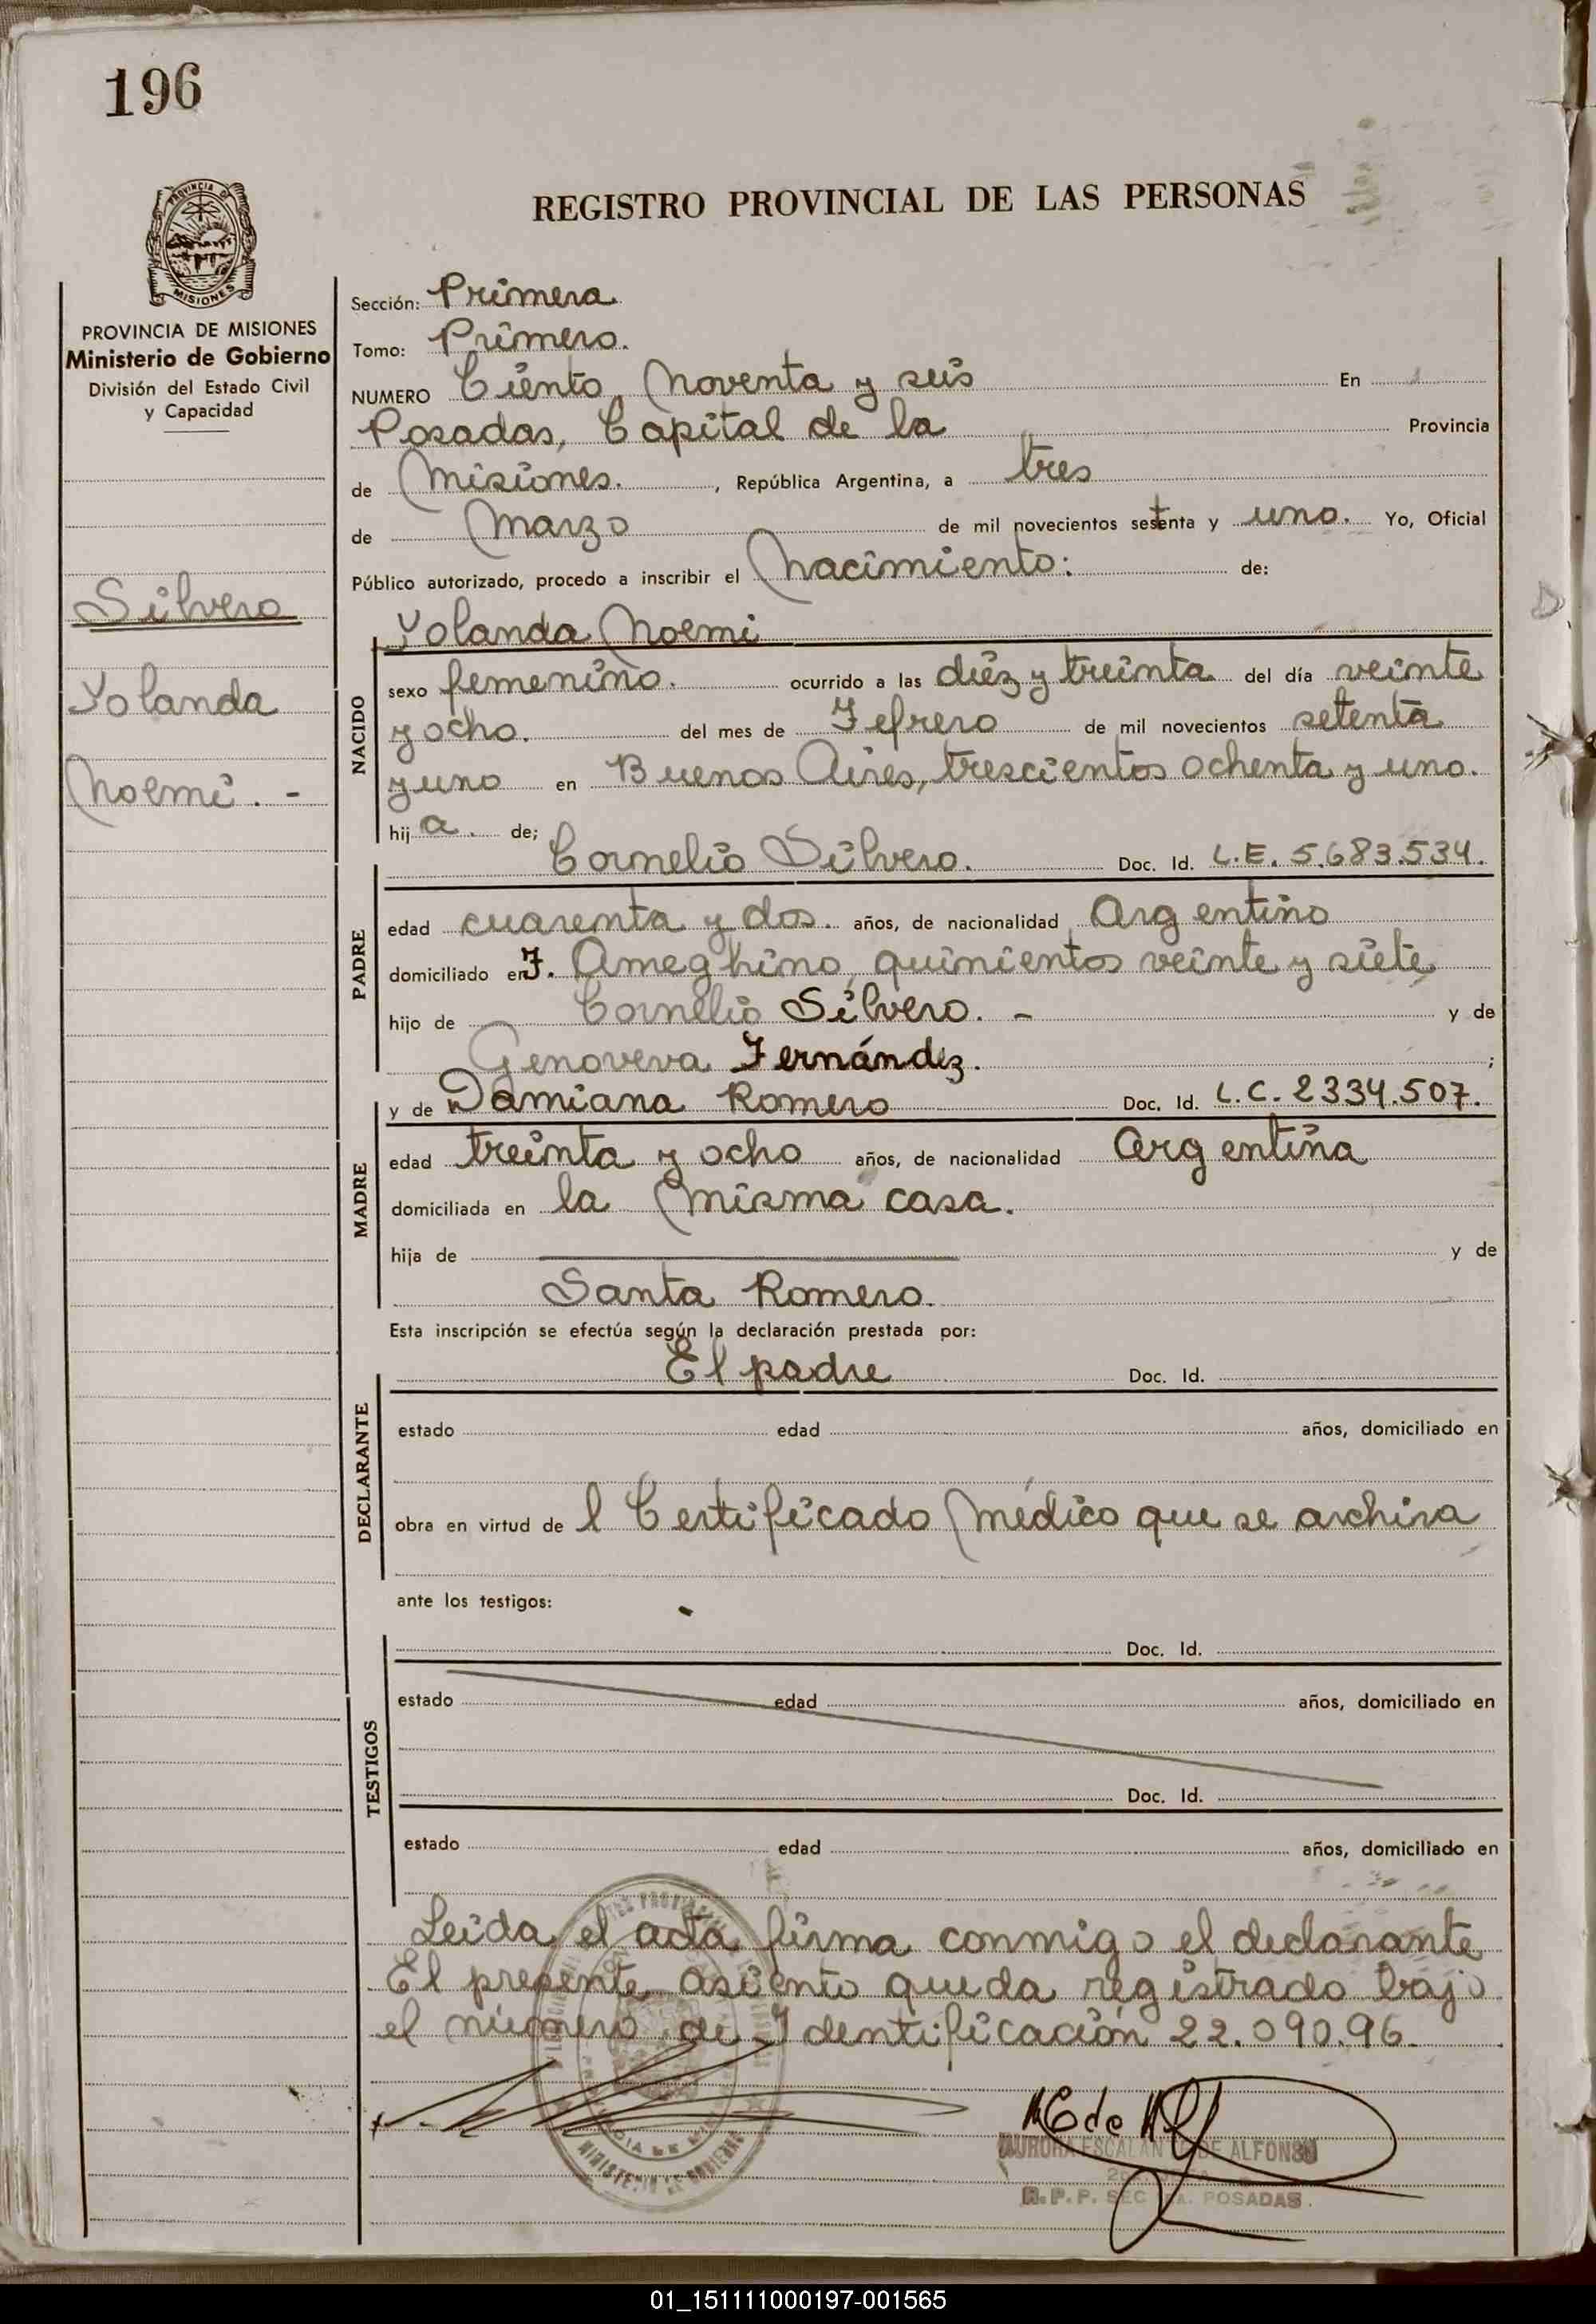 196
REGISTRO PROVINCIAL DE LAS PERSONAS
PROVINCIA DE
MISIONES
PROVINCIA DE MISIONES
Ministerio de Gobierno
División del Estado Civil
y Capacidad
Silvero
Yolanda
Noemi. -
Sección: Primera
Tomo: Primero.
NUMERO Ciento Noventa y seis En
Posadas, Capital de la Provincia
de Misiones. , República Argentina, a tres
de Marzo de mil novecientos setenta y uno. Yo, Oficial
Público autorizado, procedo a inscribir el Nacimiento: de:
Yolanda Noemi
NACIDO
sexo femenino. ocurrido a las diéz y treinta del día veinte
y ocho. del mes de Febrero de mil novecientos setenta
y uno en Buenos Aires, trescientos ochenta y uno.
hij a. de;
Cornelio Silvero. Doc. Id. L.E. 5.683.534.
PADRE
edad cuarenta y dos. años, de nacionalidad Argentino
domiciliado en F. Ameghino, quinientos veinte y siete
hijo de Cornelio Silvero. - y de
Genoveva Fernández. ;
y de Damiana Romero Doc. Id. L.C. 2334.507.
MADRE
edad treinta y ocho años, de nacionalidad Argentina
domiciliada en la Misma casa.
hija de y de
Santa Romero.
Esta inscripción se efectúa según la declaración prestada por:
El padre Doc. Id.
DECLARANTE
estado edad años, domiciliado en
obra en virtud de l Certificado Médico que se archiva
ante los testigos:
Doc. Id.
TESTIGOS
estado edad años, domiciliado en
Doc. Id.
estado edad años, domiciliado en
Leida el acta firma conmigo el declarante
El presente asiento queda registrado bajo
el número de Identificación 22.090.96.
MINISTERIO DE GOBIERNO
AURORA ESCALANTE DE ALFONSO
R.P.P. SEC POSADAS.
01_151111000197-001565